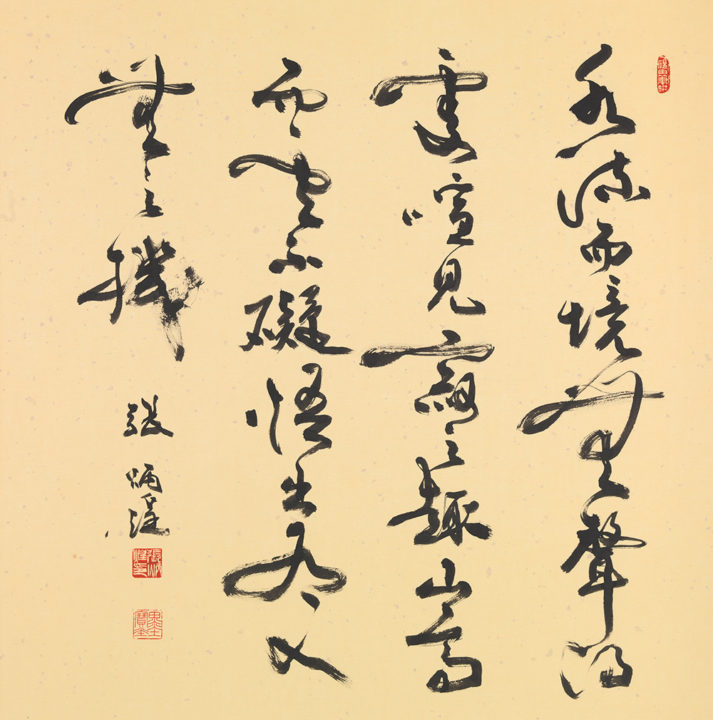 水流而境無聲得
處喧見寂之趣山高
而雲不礙悟出有入
無之機
張炳煌